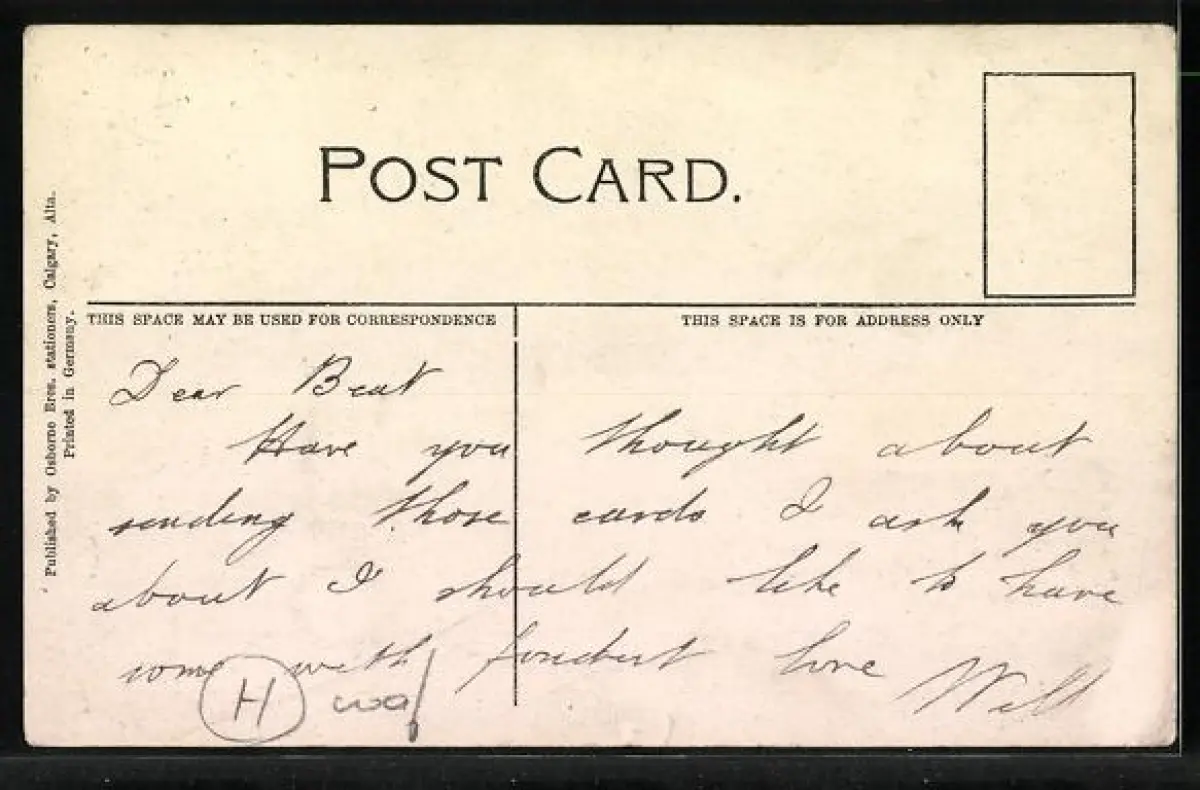 POST CARD.
Published by Osborne Bros. stationers, Calgary, Alta.
Printed in Germany.
THIS SPACE MAY BE USED FOR CORRESPONDENCE
THIS SPACE IS FOR ADDRESS ONLY
Dear Beat
Have you thought about
sending those cards I ask you
about I should like to have
some with fondest love Will
H